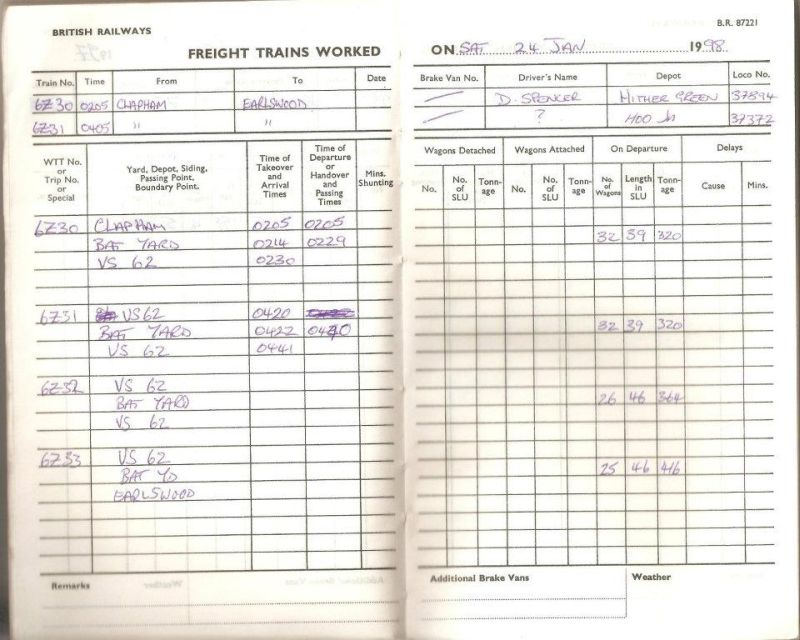 BRITISH RAILWAYS
B.R. 87221
FREIGHT TRAINS WORKED ON SAT 24 JAN 1998
Train No. Time From To Date Brake Van No. Driver's Name Depot Loco No.
6Z30 0205 CLAPHAM EARLSWOOD D. SPENCER HITHER GREEN 37894
6Z31 0405 " " ? HOO Jn 37372
WTT No. or Trip No. or Special
Yard, Depot, Siding, Passing Point, Boundary Point.
Time of Takeover and Arrival Times
Time of Departure or Handover and Passing Times
Mins. Shunting
Wagons Detached Wagons Attached On Departure Delays
No. No. of SLU Tonn-age No. No. of SLU Tonn-age No. of Wagons Length in SLU Tonn-age Cause Mins.
6Z30 CLAPHAM 0205 0205
BAT YARD 0214 0229 32 39 320
VS 62 0230
6Z31 VS62 0420
BAT YARD 0422 0440 32 39 320
VS 62 0441
6Z32 VS 62
BAT YARD 26 46 364
VS 62
6Z33 VS 62
BAT YD 25 46 416
EARLSWOOD
Remarks Additional Brake Vans Weather